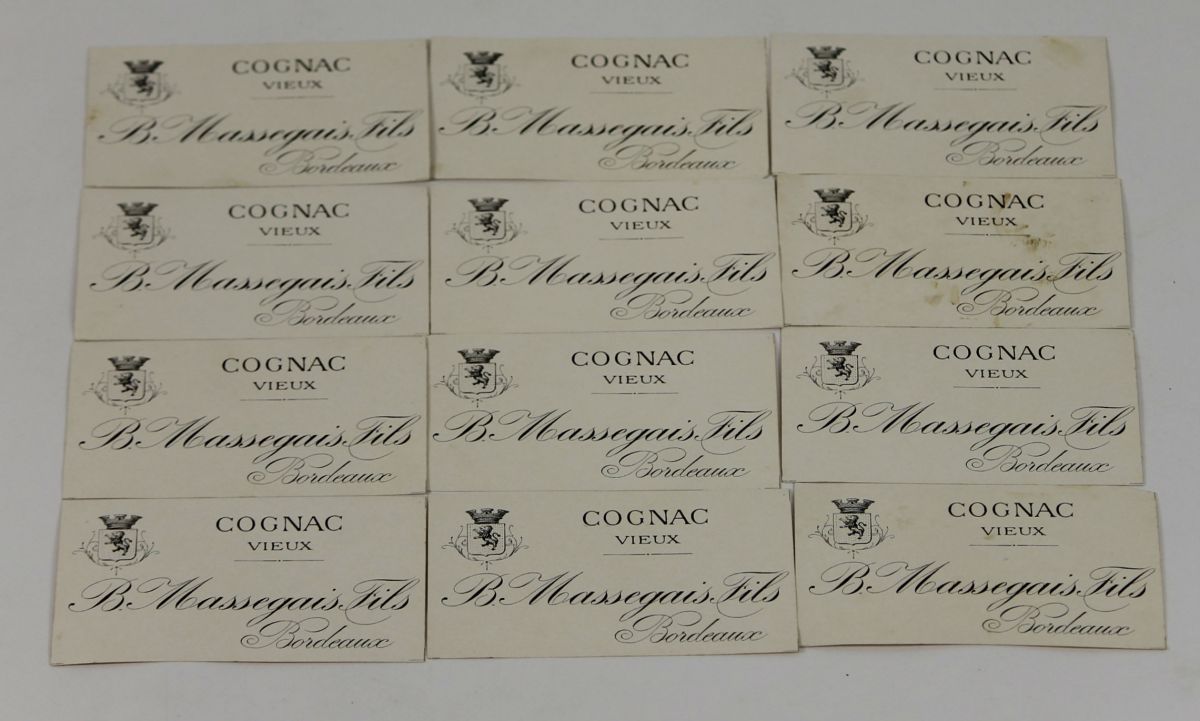 COGNAC
VIEUX
B. Massegais, Fils
Bordeaux
COGNAC
VIEUX
B. Massegais, Fils
Bordeaux
COGNAC
VIEUX
B. Massegais, Fils
Bordeaux
COGNAC
VIEUX
B. Massegais, Fils
Bordeaux
COGNAC
VIEUX
B. Massegais, Fils
Bordeaux
COGNAC
VIEUX
B. Massegais, Fils
Bordeaux
COGNAC
VIEUX
B. Massegais, Fils
Bordeaux
COGNAC
VIEUX
B. Massegais, Fils
Bordeaux
COGNAC
VIEUX
B. Massegais, Fils
Bordeaux
COGNAC
VIEUX
B. Massegais, Fils
Bordeaux
COGNAC
VIEUX
B. Massegais, Fils
Bordeaux
COGNAC
VIEUX
B. Massegais, Fils
Bordeaux